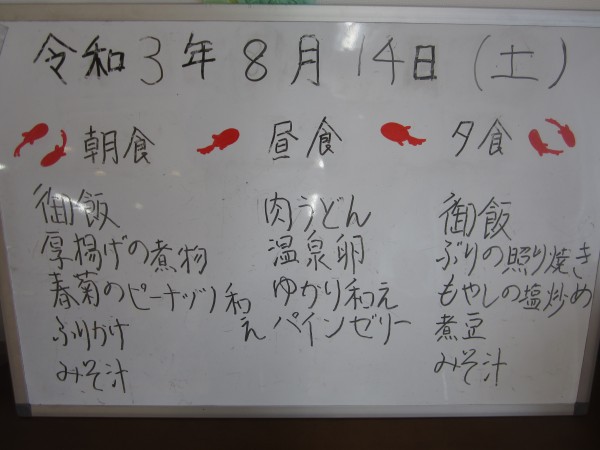 令和3年8月14日(土)
朝食
御飯
厚揚げの煮物
春菊のピーナッツ和え
ふりかけ
みそ汁
昼食
肉うどん
温泉卵
ゆかり和え
パインゼリー
夕食
御飯
ぶりの照り焼き
もやしの塩炒め
煮豆
みそ汁